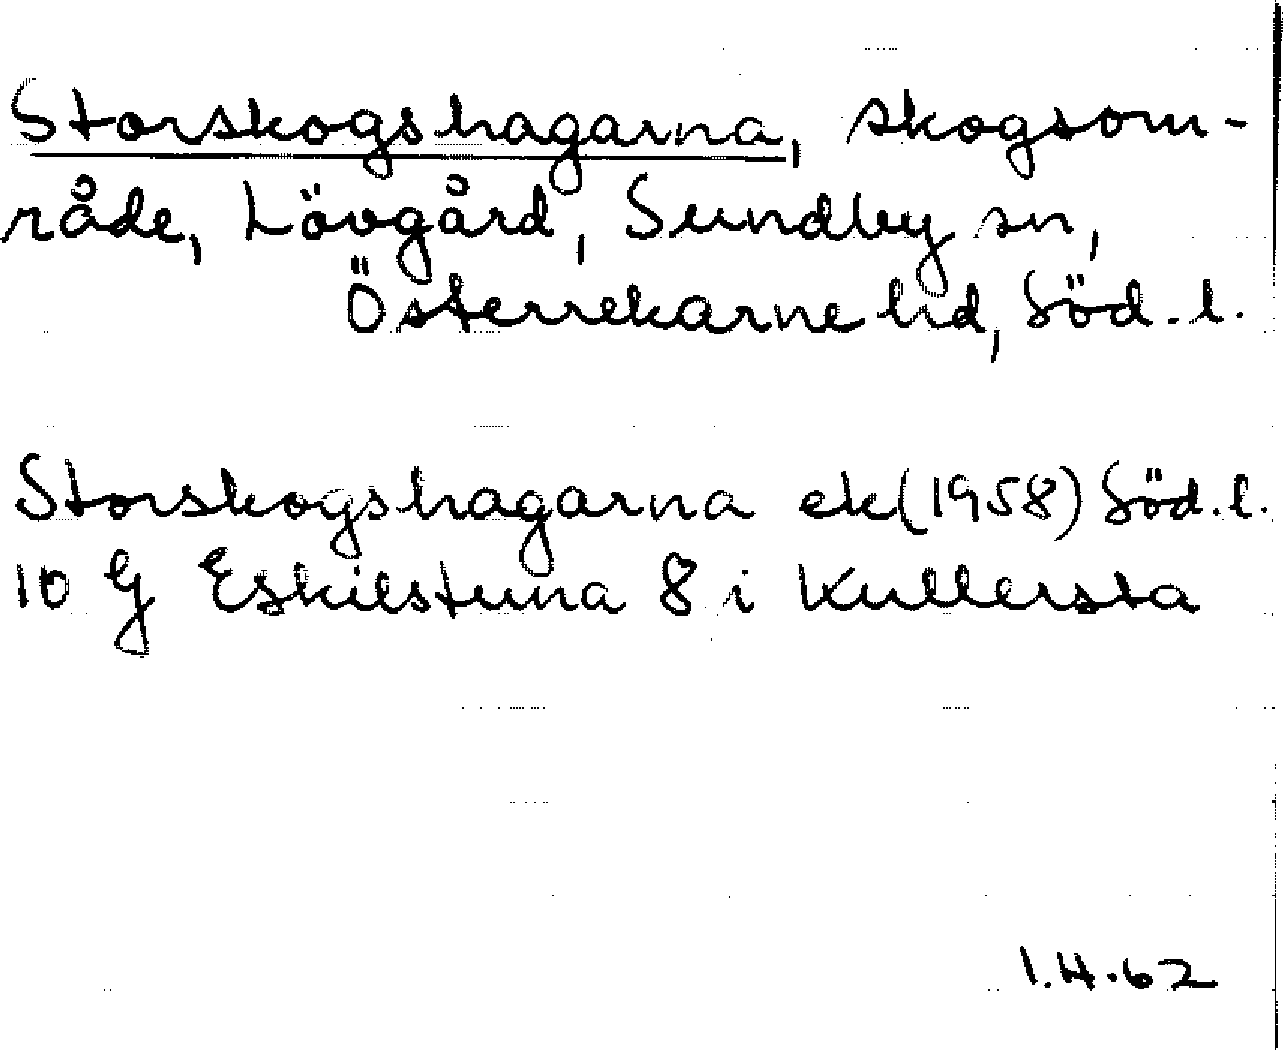 Storskogshagarna, skogsom-
råde, Lövgård, Sundby sn,
Österrekarne hd, Söd. l.
Storskogshagarna ek (1958) Söd. l.
10 G Eskilstuna 8 i Kullersta
I.H.62